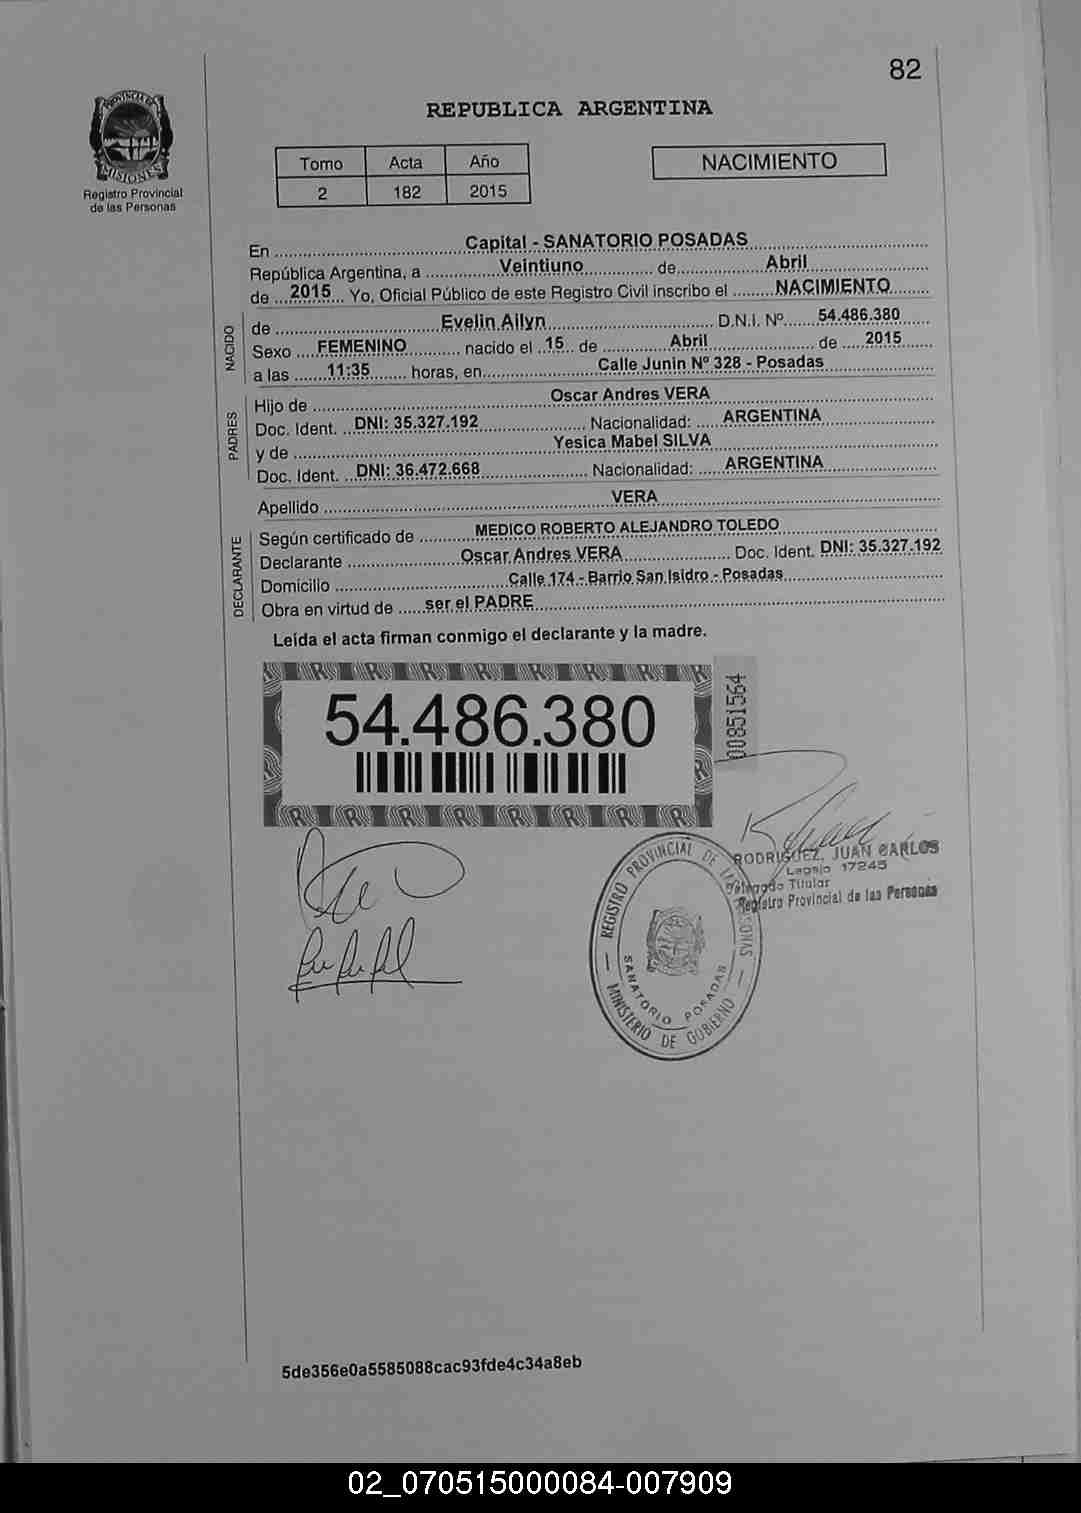 82
REPUBLICA ARGENTINA
PROVINCIA DE
MISIONES
Registro Provincial
de las Personas
Tomo Acta Año
2 182 2015
NACIMIENTO
En Capital - SANATORIO POSADAS
República Argentina, a Veintiuno de Abril
de 2015 Yo, Oficial Público de este Registro Civil inscribo el NACIMIENTO
NACIDO
de Evelin Ailyn D.N.I. Nº 54.486.380
Sexo FEMENINO nacido el 15 de Abril de 2015
a las 11:35 horas, en Calle Junin Nº 328 - Posadas
PADRES
Hijo de Oscar Andres VERA
Doc. Ident. DNI: 35.327.192 Nacionalidad: ARGENTINA
y de Yesica Mabel SILVA
Doc. Ident. DNI: 36.472.668 Nacionalidad: ARGENTINA
Apellido VERA
DECLARANTE
Según certificado de MEDICO ROBERTO ALEJANDRO TOLEDO
Declarante Oscar Andres VERA Doc. Ident. DNI: 35.327.192
Domicilio Calle 174 - Barrio San Isidro - Posadas
Obra en virtud de ser el PADRE
Leída el acta firman conmigo el declarante y la madre.
54.486.380
00851564
RODRIGUEZ, JUAN CARLOS
Legajo 17245
Delegado Titular
Registro Provincial de las Personas
REGISTRO PROVINCIAL DE LAS PERSONAS
SANATORIO POSADAS
MINISTERIO DE GOBIERNO
5de356e0a5585088cac93fde4c34a8eb
02_070515000084-007909